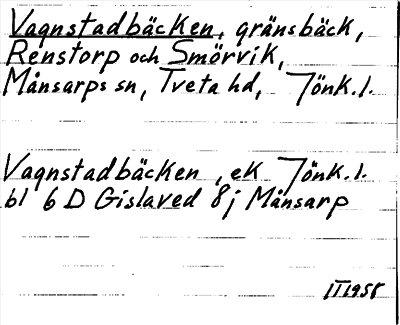 Vagnstadbäcken, gränsbäck,
Renstorp och Smörvik,
Månsarps sn, Tveta hd, Jönk. l.
Vagnstadbäcken, ek Jönk. l.
bl 6 D Gislaved 8 j Månsarp
III 1958